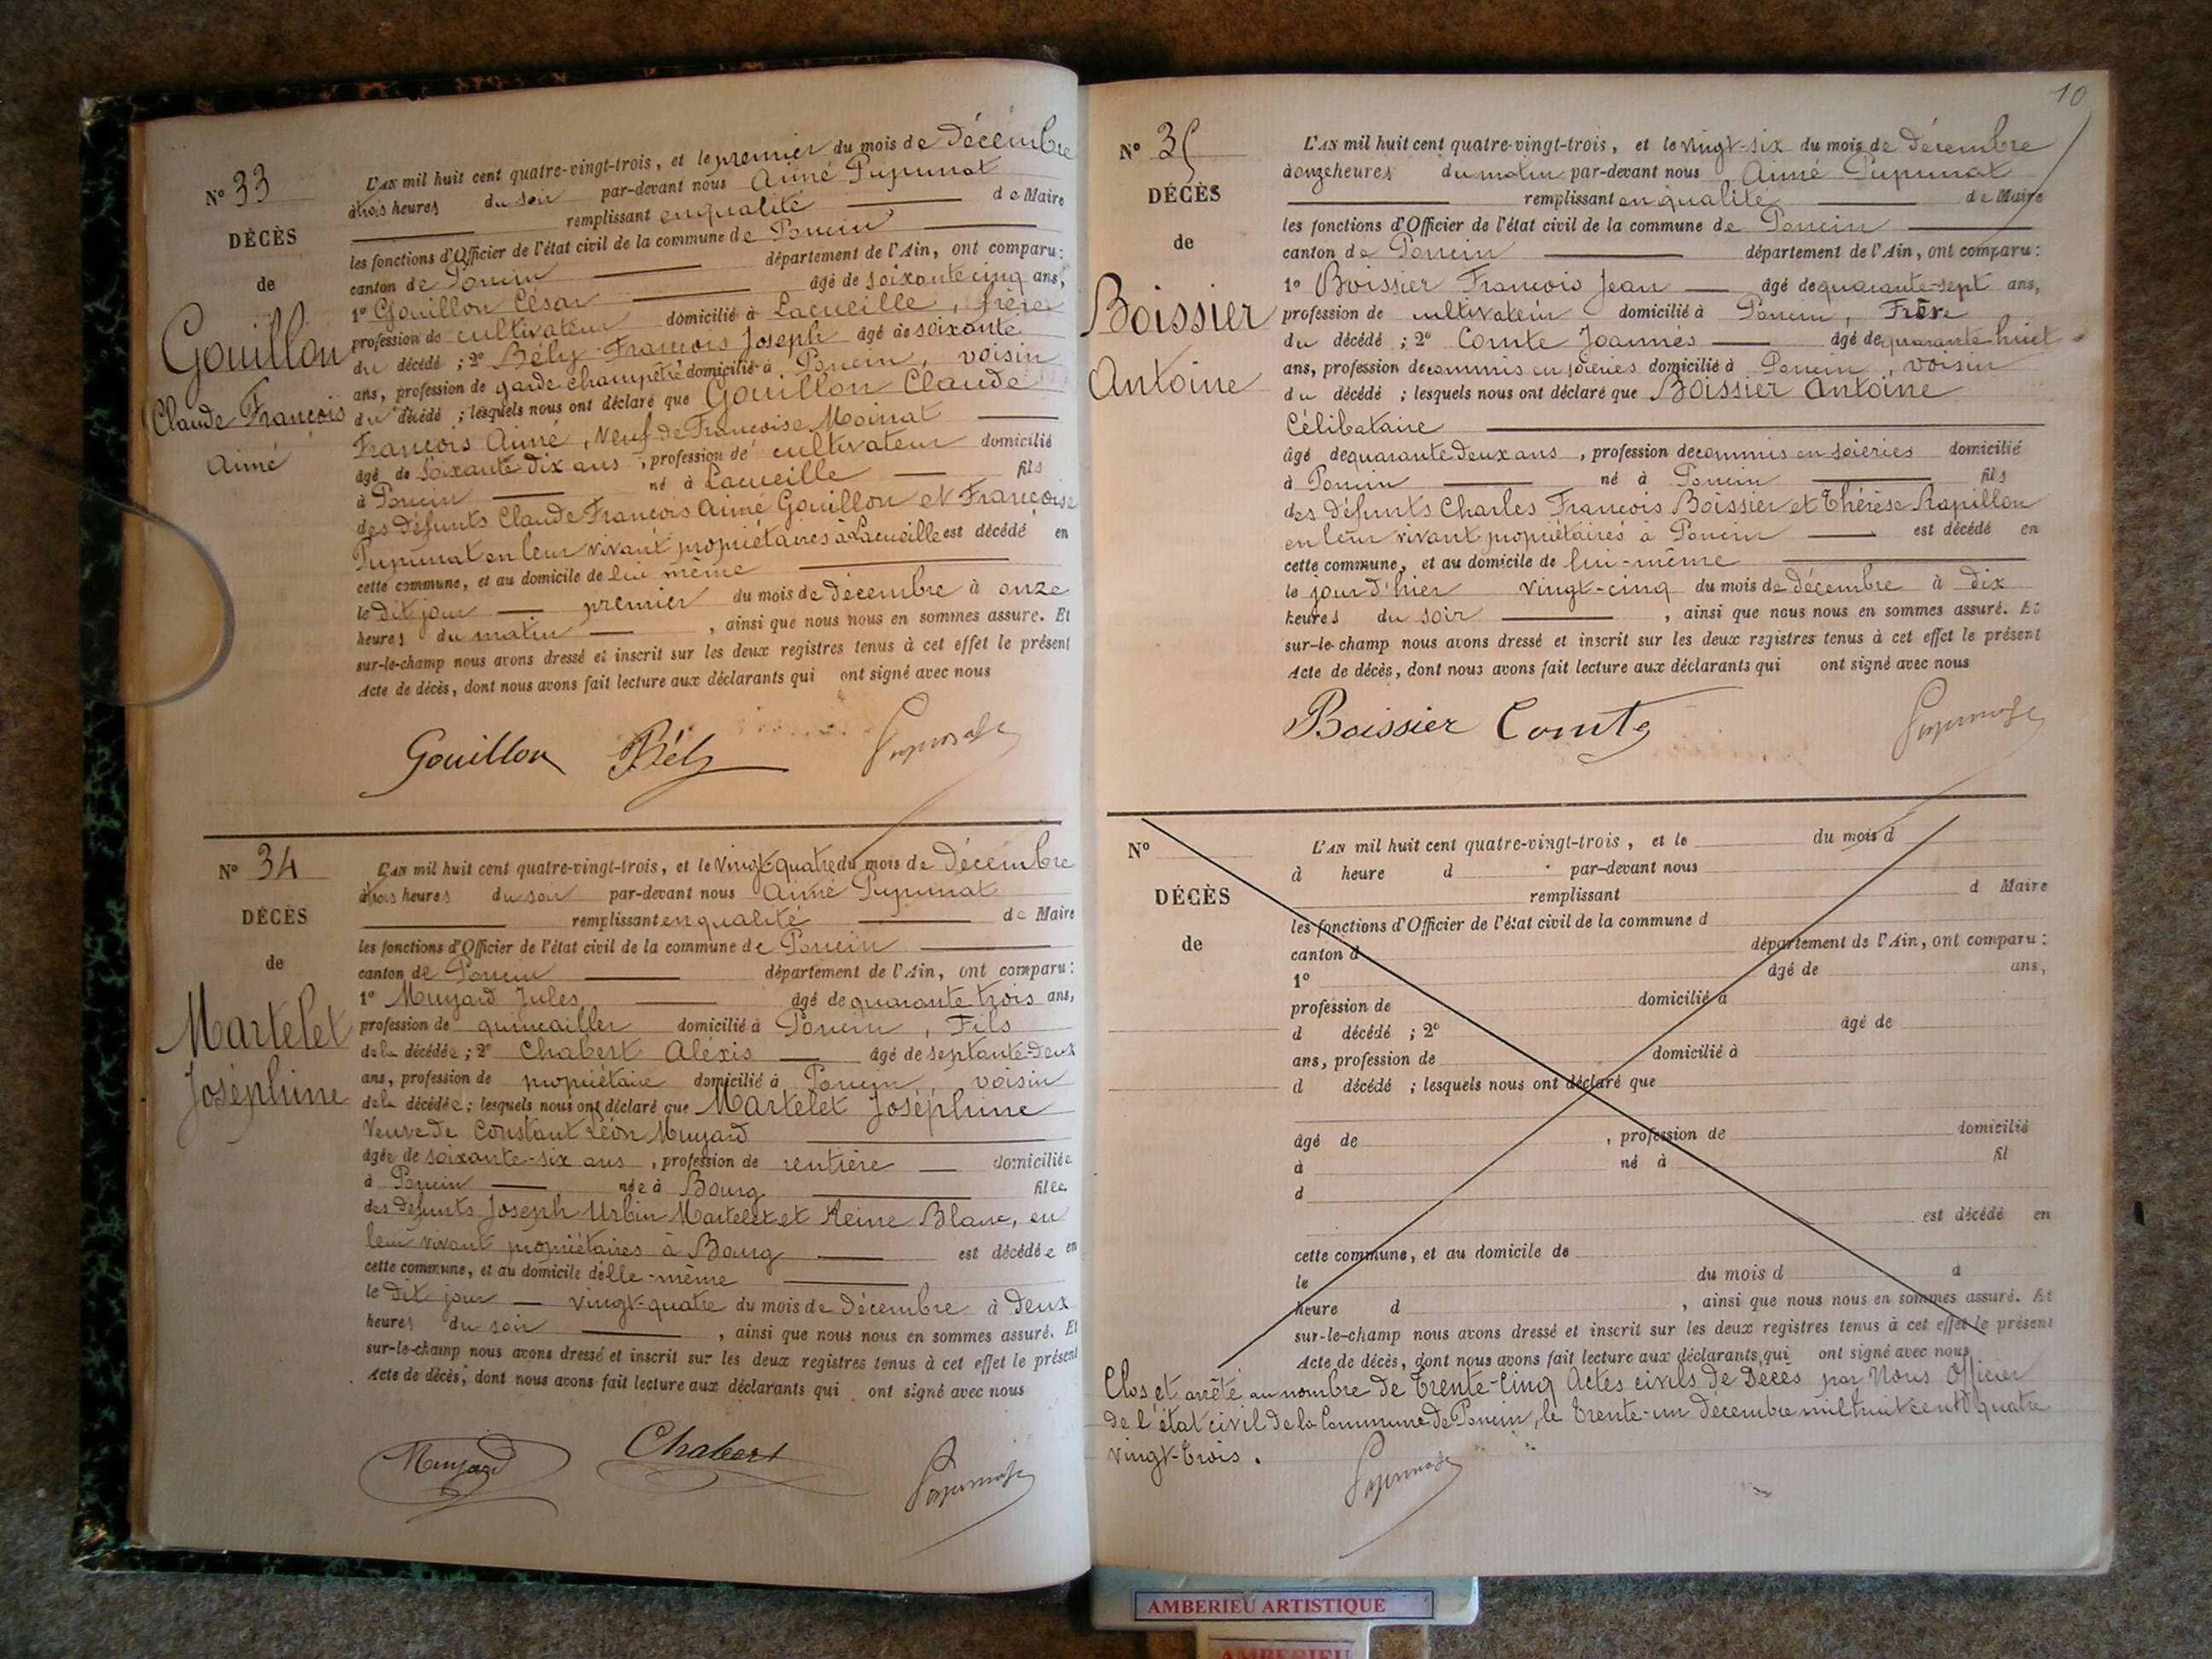 N° 33
DÉCÈS
de
Gouillon
Claude François
Aimé
L'AN mil huit cent quatre-vingt-trois, et le premier du mois de Décembre
à trois heures du soir par-devant nous Aimé Pupunat
remplissant en qualité de Maire
les fonctions d'Officier de l'état civil de la commune de Poncin
canton de Poncin département de l'Ain, ont comparu :
1° Gouillon César âgé de soixante cinq ans,
profession de cultivateur domicilié à Lacueille, frère
du décédé ; 2° Bély François Joseph âgé de soixante
ans, profession de garde champêtre domicilié à Poncin, voisin
du décédé ; lesquels nous ont déclaré que Gouillon Claude
François Aimé, Veuf de Françoise Moinat
âgé de soixante dix ans, profession de cultivateur domicilié
à Poncin né à Lacueille fils
des défunts Claude François Aimé Gouillon et Françoise
Pupunat en leur vivant propriétaires à Lacueille est décédé en
cette commune, et au domicile de lui même
le dit jour premier du mois de Décembre à onze
heures du matin, ainsi que nous nous en sommes assuré. Et
sur-le-champ nous avons dressé et inscrit sur les deux registres tenus à cet effet le présent
Acte de décès, dont nous avons fait lecture aux déclarants qui ont signé avec nous
Gouillon Bély Pupunat
N° 34
DÉCÈS
de
Martelet
Joséphine
L'AN mil huit cent quatre-vingt-trois, et le vingt-quatre du mois de Décembre
à trois heures du soir par-devant nous Aimé Pupunat
remplissant en qualité de Maire
les fonctions d'Officier de l'état civil de la commune de Poncin
canton de Poncin département de l'Ain, ont comparu :
1° Muyard Jules âgé de quarante trois ans,
profession de quincailler domicilié à Poncin, Fils
de la décédée ; 2° Chabert Aléxis âgé de septante-deux
ans, profession de propriétaire domicilié à Poncin, voisin
de la décédée ; lesquels nous ont déclaré que Martelet Joséphine
Veuve de Constant Léon Muyard
âgée de soixante-six ans, profession de rentière domiciliée
à Poncin née à Bourg fille
des défunts Joseph Urbin Martelet et Reine Blanc, en
leur vivant propriétaires à Bourg est décédée en
cette commune, et au domicile d'elle-même
le dit jour vingt-quatre du mois de Décembre à Deux
heures du soir, ainsi que nous nous en sommes assuré. Et
sur-le-champ nous avons dressé et inscrit sur les deux registres tenus à cet effet le présent
Acte de décès, dont nous avons fait lecture aux déclarants qui ont signé avec nous
Muyard Chabert Pupunat
10
N° 35
DÉCÈS
de
Boissier
Antoine
L'AN mil huit cent quatre-vingt-trois, et le vingt-six du mois de Décembre
à onze heures du matin par-devant nous Aimé Pupunat
remplissant en qualité de Maire
les fonctions d'Officier de l'état civil de la commune de Poncin
canton de Poncin département de l'Ain, ont comparu :
1° Boissier François Jean âgé de quarante-sept ans,
profession de cultivateur domicilié à Poncin, Frère
du décédé ; 2° Comte Joannès âgé de quarante huit
ans, profession de commis en soieries domicilié à Poncin, voisin
du décédé ; lesquels nous ont déclaré que Boissier Antoine
Célibataire
âgé de quarante deux ans, profession de commis en soieries domicilié
à Poncin né à Poncin fils
des défunts Charles François Boissier et Thérèse Rapillon
en leur vivant propriétaires à Poncin est décédé en
cette commune, et au domicile de lui-même
le jour d'hier vingt-cinq du mois de décembre à dix
heures du soir, ainsi que nous nous en sommes assuré. Et
sur-le-champ nous avons dressé et inscrit sur les deux registres tenus à cet effet le présent
Acte de décès, dont nous avons fait lecture aux déclarants qui ont signé avec nous
Boissier Comte Pupunat
N°
DÉCÈS
de
L'AN mil huit cent quatre-vingt-trois, et le du mois d
à heure d par-devant nous
remplissant d Maire
les fonctions d'Officier de l'état civil de la commune d
canton d département de l'Ain, ont comparu :
1° âgé de ans,
profession de domicilié à
d décédé ; 2° âgé de
ans, profession de domicilié à
d décédé ; lesquels nous ont déclaré que
âgé de , profession de domicilié
à né à fil
d
est décédé en
cette commune, et au domicile de
le du mois d à
heure d , ainsi que nous nous en sommes assuré. Et
sur-le-champ nous avons dressé et inscrit sur les deux registres tenus à cet effet le présent
Acte de décès, dont nous avons fait lecture aux déclarants qui ont signé avec nous
Clos et arrêté au nombre de Trente-Cinq Actes civils de Décès par Nous Officier
de l'état civil de la Commune de Poncin, le Trente-un Décembre mil huit cent quatre
vingt-trois.
Pupunat
AMBERIEU ARTISTIQUE
AMBERIEU